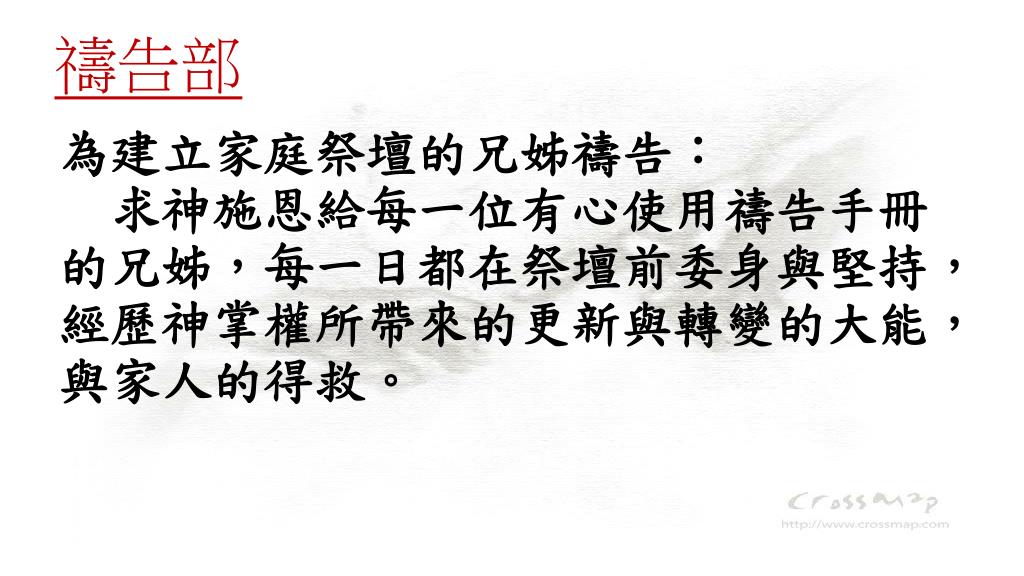 禱告部
為建立家庭祭壇的兄姊禱告：
求神施恩給每一位有心使用禱告手冊
的兄姊，每一日都在祭壇前委身與堅持，
經歷神掌權所帶來的更新與轉變的大能，
與家人的得救。
crossmap
http://www.crossmap.com